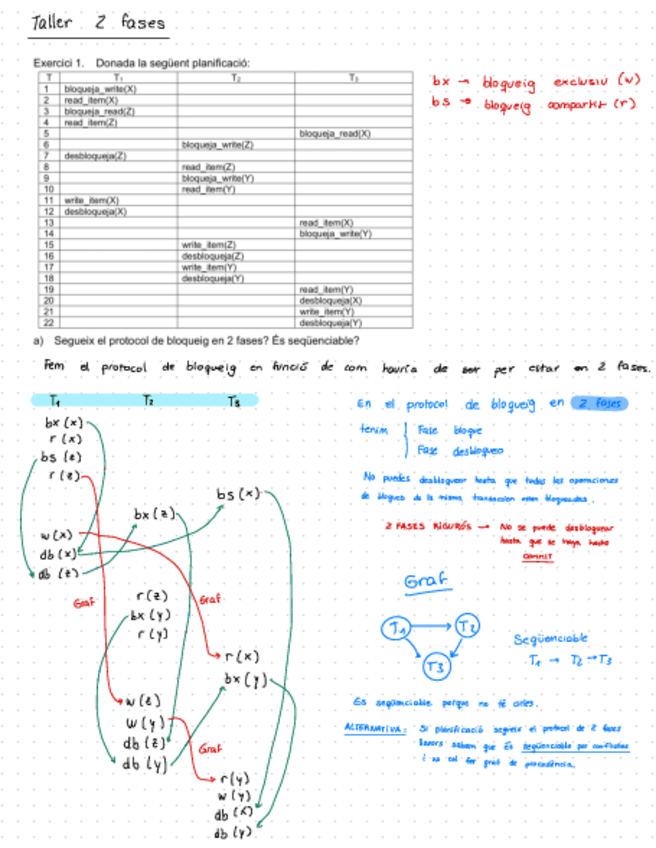 Taller 2 fases
Exercici 1. Donada la següent planificació:
T T₁ T₂ T₃
1 bloqueja_write(X)
2 read_item(X)
3 bloqueja_read(Z)
4 read_item(Z)
5 bloqueja_read(X)
6 bloqueja_write(Z)
7 desbloqueja(Z)
8 read_item(Z)
9 bloqueja_write(Y)
10 read_item(Y)
11 write_item(X)
12 desbloqueja(X)
13 read_item(X)
14 bloqueja_write(Y)
15 write_item(Z)
16 desbloqueja(Z)
17 write_item(Y)
18 desbloqueja(Y)
19 read_item(Y)
20 desbloqueja(X)
21 write_item(Y)
22 desbloqueja(Y)
bx → bloqueig exclusiu (w)
bs → bloqueig compartit (r)
a) Segueix el protocol de bloqueig en 2 fases? És seqüenciable?
Fem el protocol de bloqueig en funció de com hauria de ser per estar en 2 fases.
T₁ T₂ T₃
bx (x)
r (x)
bs (z)
r (z)
bs (x)
bx (z)
w (x)
db (x)
db (z)
r (z)
bx (y)
r (y)
Graf
Graf
r (x)
bx (y)
w (z)
w (y)
db (z)
db (y)
Graf
r (y)
w (y)
db (x)
db (y)
En el protocol de bloqueig en 2 fases
tenim
Fase bloque
Fase desbloqueo
No puedes desbloquear hasta que todas las operaciones
de bloqueo de la misma transaccion esten bloqueadas.
2 FASES RIGURÓS → No se puede desbloquear
hasta que se haya hecho
COMMIT
Graf
T₁ T₂
T₃
Seqüenciable
T₁ → T₂ → T₃
Es seqüenciable perque no té cicles.
ALTERNATIVA: Si planificació segueix el protocol de 2 fases
llavors sabem que És seqüenciable per conflictes
i no cal fer graf de precedència.